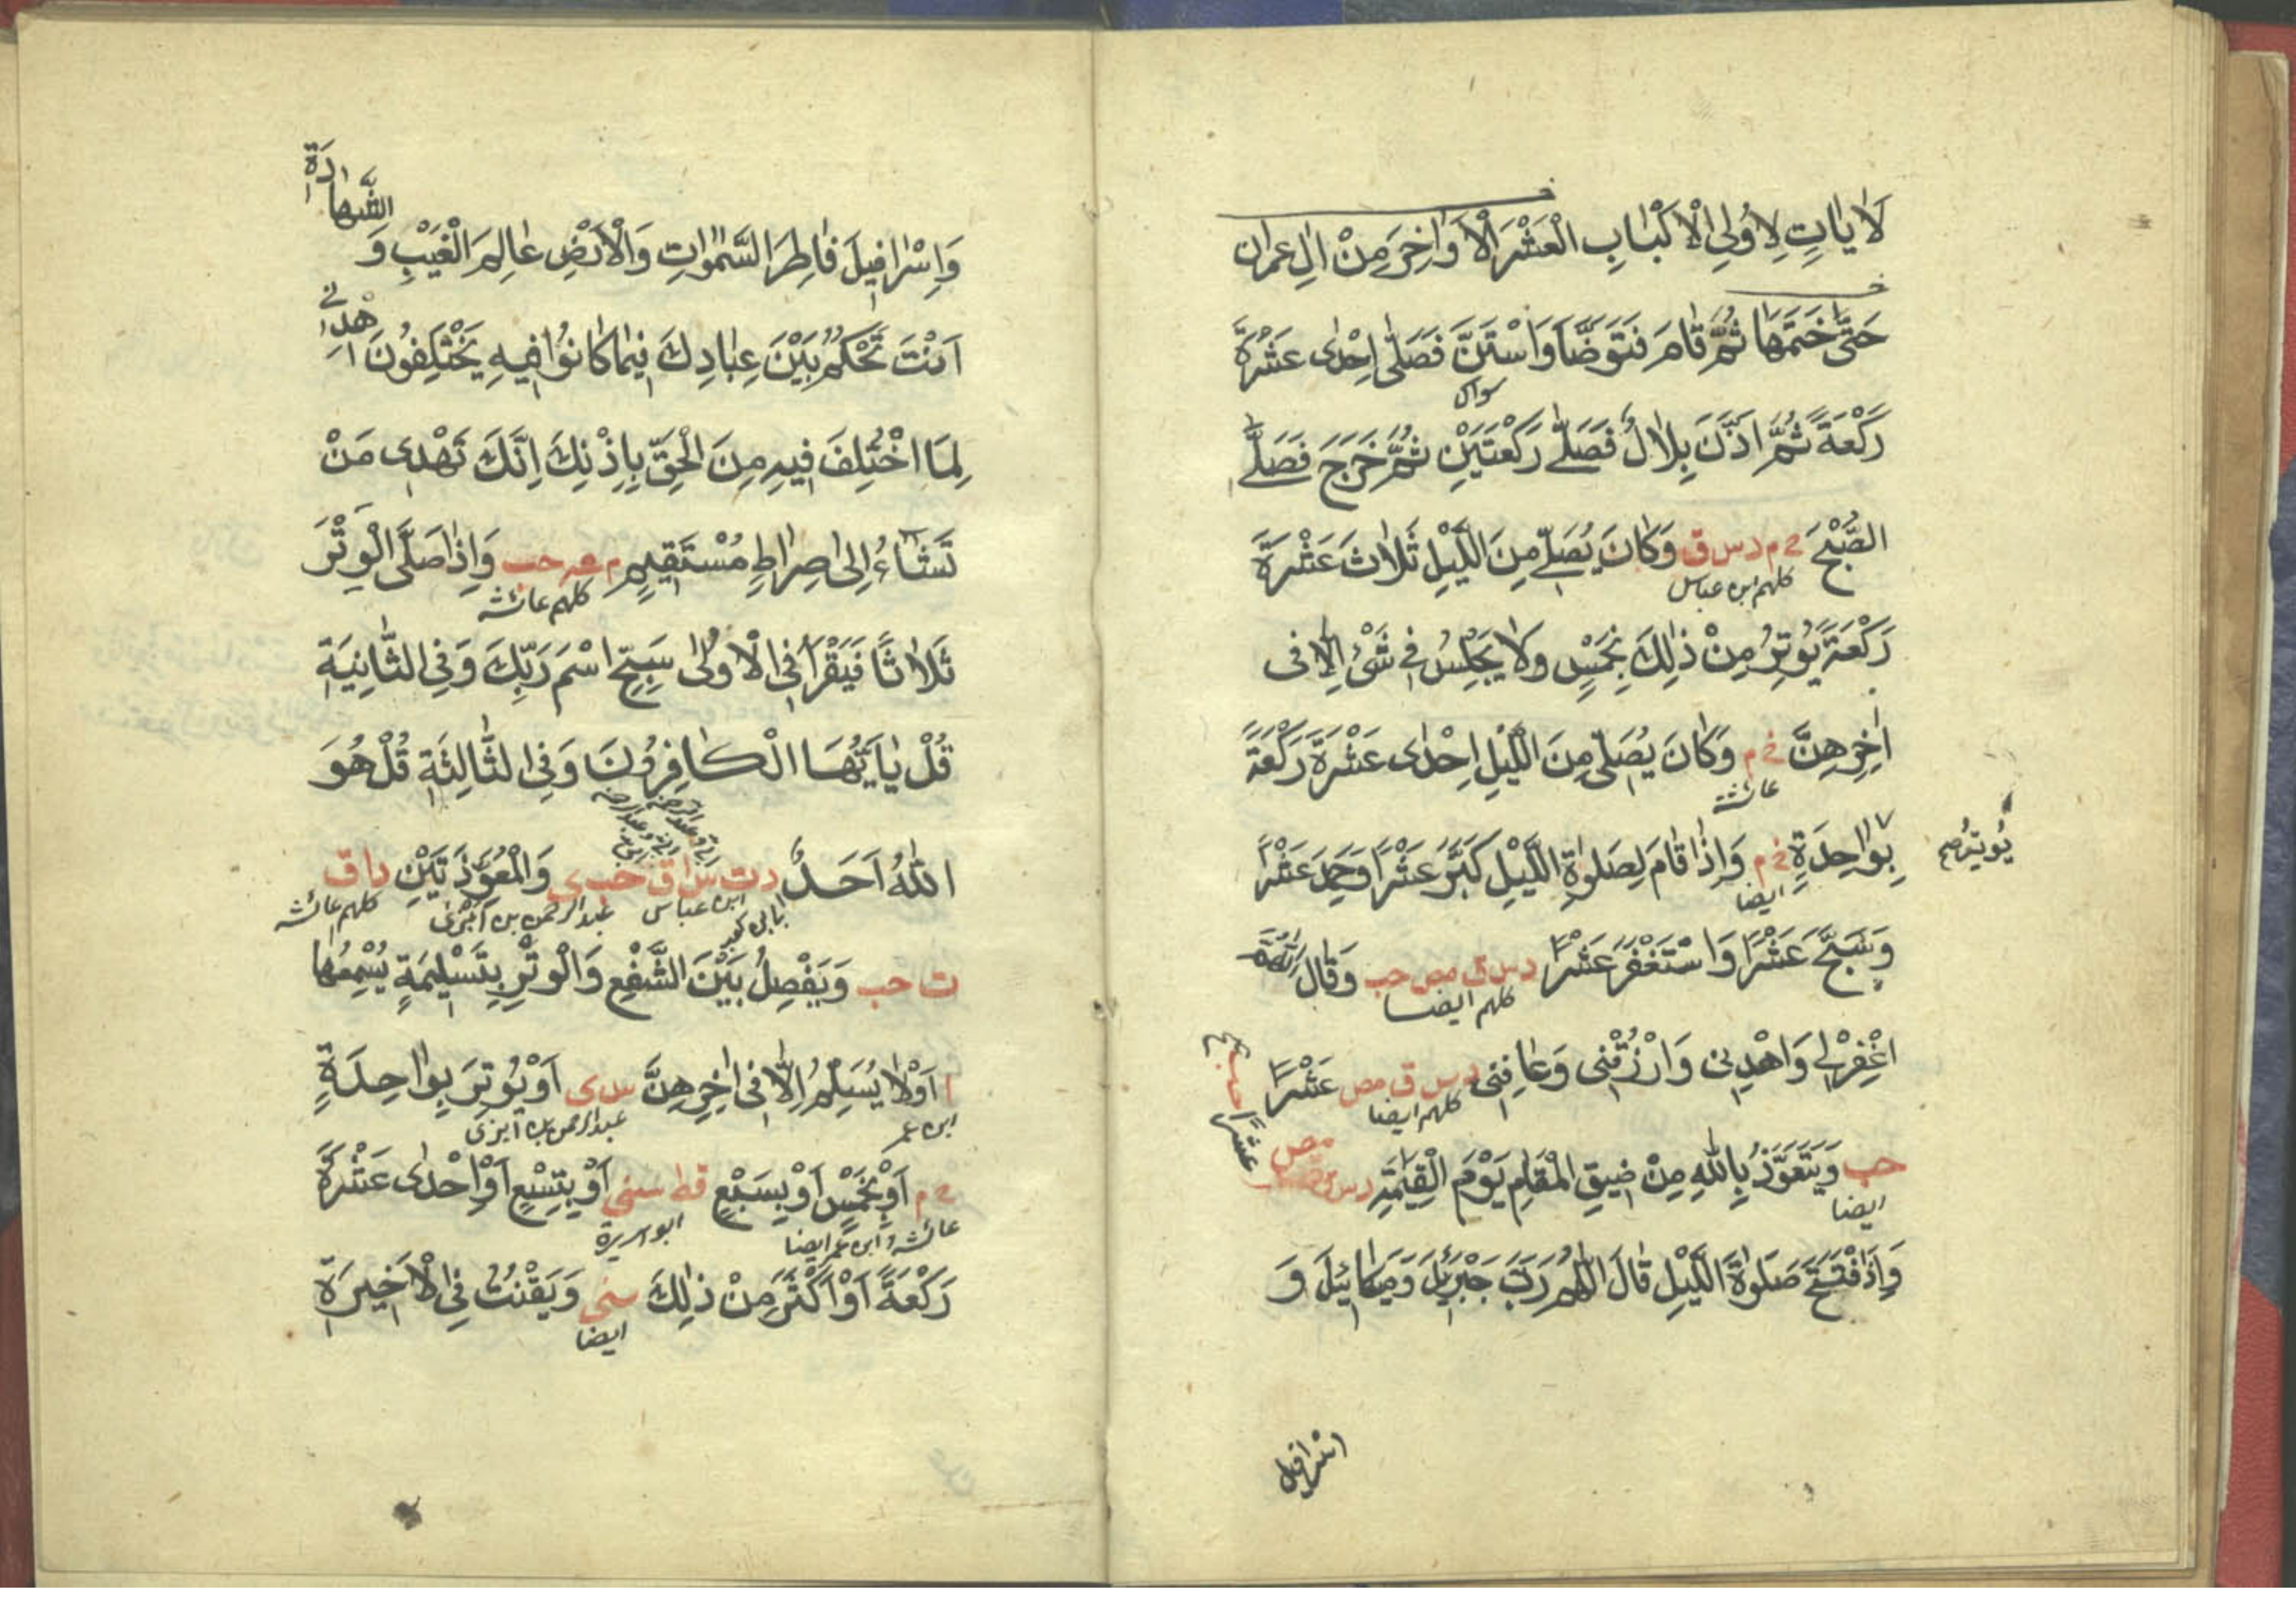 لَاٰيَاتٍ لِاُولِى الْاَلْبَابِ الْعَشْرَ الْاَوَاخِرَ مِنْ اٰلِ عِمْرٰان
حَتّٰى خَتَمَهَا ثُمَّ قَامَ فَتَوَضَّأَ وَاسْتَنَّ فَصَلّٰى اِحْدٰى عَشْرَةَ
سواك
رَكْعَةً ثُمَّ اَذَّنَ بِلَالٌ فَصَلّٰى رَكْعَتَيْنِ ثُمَّ خَرَجَ فَصَلَّى
الصُّبْحَ خ م د س ق وَكَانَ يُصَلِّى مِنَ اللَّيْلِ ثَلٰاثَ عَشْرَةَ
كلهم ابن عباس
رَكْعَةً يُوْتِرُ مِنْ ذٰلِكَ بِخَمْسٍ وَلَا يَجْلِسُ فِى شَىْءٍ اِلَّا فِى
اٰخِرِهِنَّ خ م وَكَانَ يُصَلِّى مِنَ اللَّيْلِ اِحْدٰى عَشْرَةَ رَكْعَةً
عائشة
يُوتِرُ صح
بِوَاحِدَةٍ خ م وَاِذَا قَامَ لِصَلٰوةِ اللَّيْلِ كَبَّرَ عَشْرًا وَحَمِدَ عَشْرًا
ايضا
وَسَبَّحَ عَشْرًا وَاسْتَغْفَرَ عَشْرًا د س ق مص حب وَقَالَ اللّٰهُمَّ
كلهم ايضا
اغْفِرْلِى وَاهْدِنِى وَارْزُقْنِى وَعَافِنِى د س ق مص عَشْرًا
كلهم ايضا
حب وَيَتَعَوَّذُ بِاللّٰهِ مِنْ ضِيقِ الْمَقَامِ يَوْمَ الْقِيٰمَةِ د س ق مص
ايضا
عشرًا
وَاِذَا افْتَتَحَ صَلٰوةَ اللَّيْلِ قَالَ اللّٰهُمَّ رَبَّ جَبْرَئِيلَ وَمِيكَائِيلَ وَ
اسرافيل
الشَّهَادَةِ
وَاِسْرَافِيلَ فَاطِرَ السَّمٰوٰاتِ وَالْاَرْضِ عَالِمَ الْغَيْبِ وَ
اَنْتَ تَحْكُمُ بَيْنَ عِبَادِكَ فِيمَا كَانُوْا فِيهِ يَخْتَلِفُونَ اِهْدِنِى
لِمَا اخْتُلِفَ فِيهِ مِنَ الْحَقِّ بِاِذْنِكَ اِنَّكَ تَهْدِى مَنْ
تَشَاءُ اِلٰى صِرَاطٍ مُسْتَقِيمٍ م عه حب وَاِذَا صَلَّى الْوِتْرَ
كلهم عائشة
ثَلَاثًا فَيَقْرَأُ فِى الْاُولٰى سَبِّحِ اسْمَ رَبِّكَ وَفِى الثَّانِيَةِ
قُلْ يَا اَيُّهَا الْكَافِرُونَ وَفِى الثَّالِثَةِ قُلْ هُوَ
اللّٰهُ اَحَدٌ د ت س ا ق حب ى وَالْمُعَوِّذَتَيْنِ د ا ق
ابى كعب ابن عباس عبد الرحمن بن ابزى كلهم عائشة
ت حب وَيَفْصِلُ بَيْنَ الشَّفْعِ وَالْوِتْرِ بِتَسْلِيمَةٍ يُسْمِعُهَا
ا اَوْ لَا يُسَلِّمُ اِلَّا فِى اٰخِرِهِنَّ س ى اَوْ يُوتِرَ بِوَاحِدَةٍ
ابن عمر عبد الرحمن بن ابزى
خ م اَوْ بِخَمْسٍ اَوْ بِسَبْعٍ قط سنى اَوْ بِتِسْعٍ اَوْ اِحْدٰى عَشْرَةَ
عائشة و ابن عمر ايضا ابو هريرة
رَكْعَةً اَوْ اَكْثَرَ مِنْ ذٰلِكَ سنى وَيَقْنُتُ فِى الْاَخِيرَةِ
ايضا